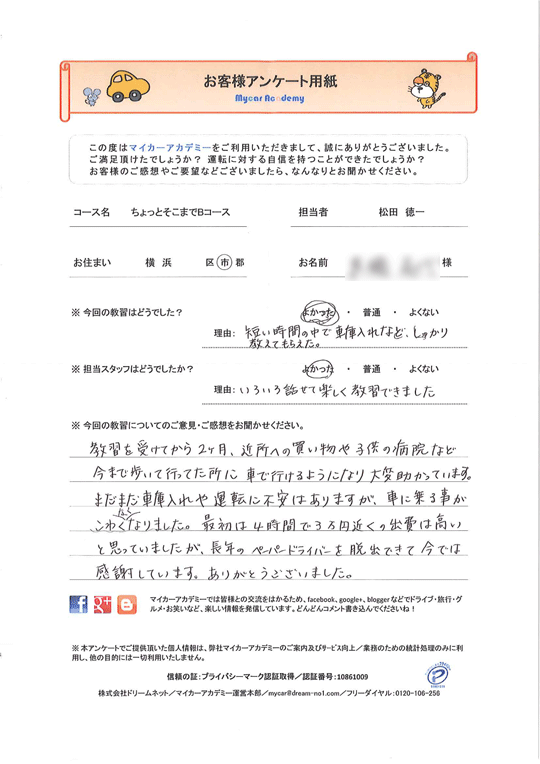 お客様アンケート用紙
Mycar Academy
この度はマイカーアカデミーをご利用いただきまして、誠にありがとうございました。
ご満足頂けたでしょうか? 運転に対する自信を持つことができたでしょうか?
お客様のご感想やご要望などございましたら、なんなりとお聞かせください。
コース名 ちょっとそこまでBコース 担当者 松田 徳一
お住まい 横浜 区 市 郡 お名前 様
※ 今回の教習はどうでした? よかった ・ 普通 ・ よくない
理由: 短い時間の中で車庫入れなど、しっかり
教えてもらえた。
※ 担当スタッフはどうでしたか? よかった ・ 普通 ・ よくない
理由: いろいろ話せて楽しく教習できました
※ 今回の教習についてのご意見・ご感想をお聞かせください。
教習を受けてから2ヶ月、近所への買い物や子供の病院など
今まで歩いて行ってた所に車で行けるようになり大変助かっています。
まだまだ車庫入れや運転に不安はありますが、車に乗る事が
こわくなくなりました。最初は4時間で3万円近くの出費は高い
と思っていましたが、長年のペーパードライバーを脱出できて今では
感謝しています。ありがとうございました。
マイカーアカデミーでは皆様との交流をはかるため、facebook、google+、bloggerなどでドライブ・旅行・グ
ルメ・お笑いなど、楽しい情報を発信しています。どんどんコメント書き込んでくださいね!
※ 本アンケートでご提供頂いた個人情報は、弊社マイカーアカデミーのご案内及びサービス向上/業務のための統計処理のみに利
用し、他の目的には一切利用いたしません。
信頼の証:プライバシーマーク認証取得/認証番号:10861009
株式会社ドリームネット/マイカーアカデミー運営本部/mycar@dream-no1.com/フリーダイヤル:0120-106-256